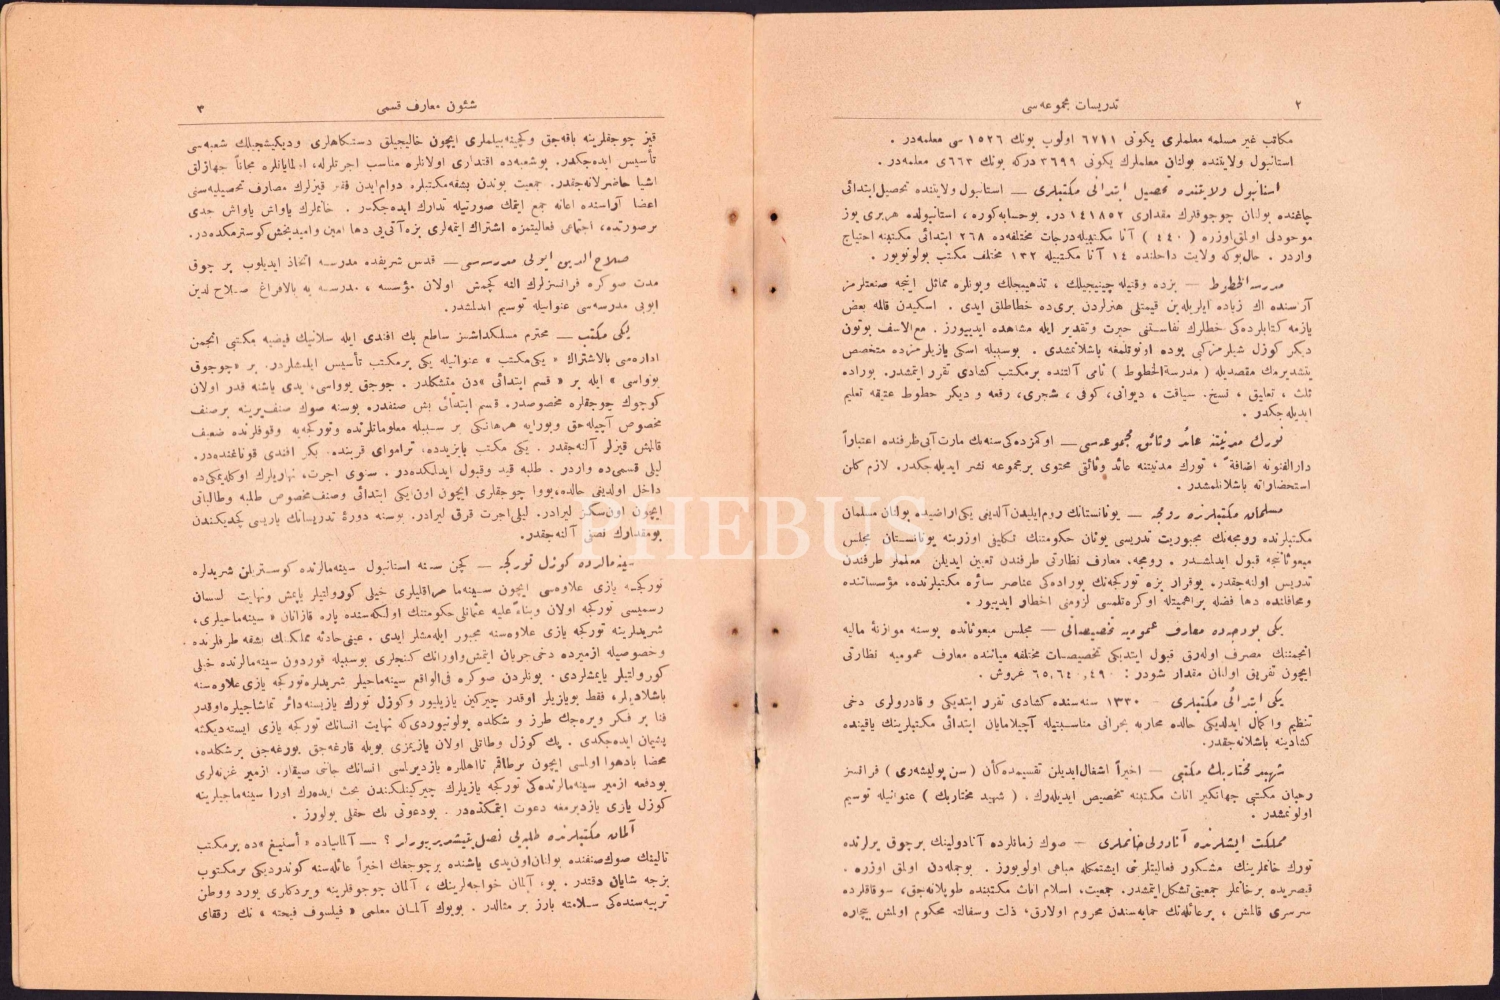 ٢
تدريسات مجموعه‌سی
مكاتب غير مسلمه معلملری يكونی ٦٧١١ اولوب بونك ١٥٢٦ سی معلمه‌در .
استانبول ولايتنده بولنان معلملرك يكونی ٣٦٩٩ دركه بونك ٦٦٣ی معلمه‌در .
استانبول ولايتنده تحصيل ابتدائی مكتبلری — استانبول ولايتنده تحصيل ابتدائی
چاغنده بولنان چوجوقلرك مقداری ١٤١٨٥٢ در. بوحسابه‌كوره ، استانبولده هربری يوز
موجودلی اولمق اوزره ( ٤٤٠ ) آنا مكتبيله درجات مختلفه‌ده ٢٦٨ ابتدائی مكتبنه احتياج
واردر . حال‌بوكه ولايت داخلنده ١٤ آنا مكتبيله ١٣٢ مختلف مكتب بولونويور .
مدرسة‌الخطوط — بزده وقتيله چينيجيلك ، تذهيبجيلك وبونلره مماثل اينجه صنعتلرمز
آره‌سنده اك زياده ايلريله‌ين قيمتلی هنرلردن بری‌ده خطاطلق ايدی . اسكيدن قالمه بعض
يازمه كتابلرده‌كی خطلرك نفاستنی حيرت وتقدير ايله مشاهده ايديیورز . مع‌الاسف بوتون
ديكر كوزل شيلرمزكبی بوده اونوتلمغه باشلانمشدی . بوسببله اسكی يازيلرمزده متخصص
يتشديرمك مقصديله ( مدرسة‌الخطوط ) نامی آلتنده برمكتب كشادی تقرر ايتمشدر. بوراده
ثلث ، تعليق ، نسخ. سياقت ، ديوانی، كوفی ، شجری، رقعه و ديكر خطوط عتيقه تعليم
ايديله‌جكدر .
تورك مدنيتنه عائد وثائق مجموعه‌سی — اوكمزده‌كی سنه‌نك مارت آيی ظرفنده اعتباراً
دارالفنونه اضافةً ، تورك مدنيتنه عائد وثائقی محتوی برمجموعه نشر ايديله‌جكدر. لازم كلن
استحضاراته باشلانلمشدر .
مسلمان مكتبلرنده رومجه — يونانستانك روم‌ايليدن آلديغی يكی اراضيده بولنان مسلمان
مكتبلرنده رومجه‌نك مجبوريت تدريسی يونان حكومتنك تكليفی اوزرينه يونانستان مجلس
مبعوثانجه قبول ايدلمشدر . رومجه، معارف نظارتی طرفندن تعيين ايديلن معلملر طرفندن
تدريس اولنه‌جقدر. بوقرار بزه توركجه‌نك بوراده‌كی عناصر سائره مكتبلرنده، مؤسساتنده
ومحافلنده دها فضله براهميتله اوكره‌تلمسی لزومنی اخطار ايديیور .
يكی بودجه‌ده معارف عموميه تخصيصاتی — مجلس مبعوثانده بوسنه موازنۀ ماليه
انجمننك مصرف اوله‌رق قبول ايتديكی تخصيصات مختلفه مياننده معارف عموميه نظارتی
ايچون تفريق اولنان مقدار شودر : ٦٥,٦٤٠,٤٩٠ غروش .
يكی ابتدائی مكتبلری — ١٣٣٠ سنه‌سنده كشادی تقرر ايتديكی و قادرولری دخی
تنظيم واكمال ايدلديكی حالده محاربه بحرانی مناسبتيله آچيلامايان ابتدائی مكتبلرينك ياقينده
كشادينه باشلانه‌جقدر.
شهيد مختاربك مكتبی — اخيراً اشغال‌ايديلن تقسيمده‌كائن ( سن پولشه‌ری ) فرانسز
رهبان مكتبی جهانكير اناث مكتبنه تخصيص ايديله‌رك ، ( شهيد مختاربك ) عنوانيله توسيم
اولونمشدر .
مملكت ايشلرنده آنادولی خانملری — صوك زمانلرده آنادولينك برچوق يرلرنده
تورك خانملرينك مشكور فعاليتلرنی ايشتمكله مباهی اولويورز . بوجمله‌دن اولمق اوزره .
قيصريده برخانملر جمعيتی‌تشكل‌ايتمشدر. جمعيت، اسلام اناث مكتبنده طوپلانه‌جق، سوقاقلرده
سرسری قالمش ، برعائله‌نك حمايه‌سندن محروم اولارق، ذلت وسفالته محكوم اولمش بيچاره
٣
شئون معارف قسمی
قيز چوجقلرينه باقه‌جق وكچينه‌بيلملری ايچون خاليجيلق دستكاهلری وديكيشجيلك شعبه‌سی
تأسيس ايده‌جكدر. بوشعبه‌ده اقتداری اولانلره مناسب اجرتلرله، اولمايانلره مجاناً جهازلق
اشيا حاضرلانه‌جقدر. جمعيت بوندن بشقه‌مكتبلره دوام‌ايدن فقير قيزلرك مصارف تحصيليه‌سنی
اعضا آراسنده اعانه جمع ايتمك صورتيله تدارك ايده‌جكدر . خانملرك ياواش ياواش جدی
برصورتده، اجتماعی فعاليتمزه اشتراك ايتمه‌لری بزه آتی‌يی دها امين واميدبخش كوسترمكده‌در.
صلاح الدين ايوبی مدرسه‌سی — قدس شريفده مدرسه اتخاذ ايديلوب بر چوق
مدت صوكره فرانسزلرك الته كچمش اولان مؤسسه ، مدرسه يه بالافراغ صلاح لدين
ايوبی مدرسه‌سی عنوانيله توسيم ايدلمشدر.
يكی مكتب — محترم مسلكداشمز ساطع بك افندی ايله سلانيك فيضيه مكتبی انجمن
اداره‌سی بالاشتراك « يكی‌مكتب » عنوانيله يكی برمكتب تأسيس ايلمشلردر. بر «چوجوق
يوواسی » ايله بر « قسم ابتدائی »دن متشكلدر . چوجق يوواسی، يدی ياشنه قدر اولان
كوچوك چوجقلره مخصوصدر. قسم ابتدائی بش صنفدر. بوسنه صوك صنف يرينه برصنف
مخصوص آچيله‌جق وبورايه هرهانكی بر سببله معلوماتلرنده وتوركجه‌يه وقوفلرنده ضعيف
قالمش قيزلر آلنه‌جقدر . يكی مكتب بايزيدده، ترامواى قربنده. بكر افندی قوناغنده‌در.
ليلی قسمی‌ده واردر . طلبه قيد وقبول ايدلكده‌در . سنوی اجرت، نهاريلرك اوكله‌يمكی‌ده
داخل اولديغی حالده، يووا چوجقلری ايچون اون‌ايكی ابتدائی وصنف‌مخصوص طلبه وطالباتی
ايچون اون‌سكز ليرادر. ليلی‌اجرت قرق ليرادر. بوسنه دورۀ تدريساتك ياريسی كچديكندن
بومقدارك نصفی آلنه‌جقدر.
سينه‌مالرده كوزل توركجه — كچن سنه استانبول سينه‌مالرنده كوستريلن شريدلره
توركجه يازی علاوه‌سی ايچون سينه‌ما مراقليلری خيلی كورولتيلر ياپمش ونهايت لسان
رسميسی توركجه اولان وبناءً عليه عثمانلی حكومتنك اولكه‌سنده پاره قازانان « سينه‌ماجيلری،
شريدلرينه توركجه يازی علاوه‌سنه مجبور ايله‌مشلر ايدی . عينی‌حادثه مملكتك بشقه طرفلرنده .
وخصوصيله ازميرده دخی‌جريان ايتمش‌واورانك كنجلری بوسببله قوردون سينه‌مالرنده خيلی
كورولتيلر ياپمشلردی . بونلردن صوكره فی‌الواقع سينه‌ماجيلر شريدلره‌توركجه يازی‌علاوه‌سنه
باشلاديلر، فقط بويازيلر اوقدر چيركين يازيليور وكوزل تورك يازيسنه‌دائر تماشاجيلره‌اوقدر
فنا بر فكر ويره‌جك طرز و شكلده بولونيوردی‌كه نهايت انسانك توركجه يازی ايسته‌ديكنه
پشيمان ايده‌جكدی . پك كوزل وطاتلی اولان يازيمزی بويله قارغه‌جق بورغه‌جق برشكلده،
محضا بادهوا اولسی ايچون برطاقم نااهللره يازديرلسی انسانك جانی صيقار. ازمير غزته‌لری
بودفعه ازمير سينه‌مالرنده‌كی توركجه يازيلرك چيركينلكندن بحث ايده‌رك اورا سينه‌ماجيلرينه
كوزل يازی يازديرمغه دعوت ايتمكده‌در . بودعوتی پك حقلی بولورز .
آلمان مكتبلرنده طلبه‌يی نصل يتيشديريیورلر ؟ — آلمانياده « أسنيغ »ده برمكتب
تالينك صوك‌صنفنده بولنان‌اون‌يدی ياشنده برچوجغك اخيراً عائله‌سنه كوندرديكی برمكتوب
بزجه شايان دقتدر . بو، آلمان خواجه‌لرينك ، آلمان چوجوقلرينه ويردكلری يورد ووطن
تربيه‌سنده‌كی سلامته بارز بر مثالدر . بويوك آلمان معلمی « فيلسوف فيخته » نك رفقای
PHEBUS